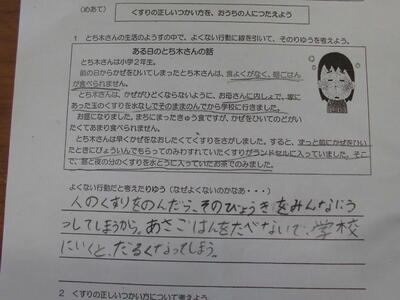 (めあて) くすりの正しいつかい方を、おうちの人につたえよう
1 とち木さんの生活のようすの中で、よくない行動に線を引いて、そのりゆうを考えよう。
ある日のとち木さんの話
とち木さんは小学2年生。
前の日からかぜをひいてしまったとち木さんは、食よくがなく、朝ごはん
が食べられません。
とち木さんは、かぜがひどくならないように、お母さんに内しょで、家に
あった玉のくすりを水なしでそのままのんでから学校に行きました。
お昼になりました。まちにまったきゅう食ですが、かぜをひいてのどがい
たくてあまり食べられません。
とち木さんは早くかぜをなおしたくてくすりをさがしました。すると、ずっと前にかぜをひい
たときにびょういんでもらってのみわすれていたくすりがランドセルに入っていました。そこ
で、昼と夜の分のくすりを水とうに入っていたお茶でのみました。
よくない行動だと考えたりゆう(なぜよくないのかなあ・・・)
人のくすりをのんだら、そのびょうきをみんなにう
つしてしまうから。あさごはんをたべないで、学校
にいくと、だるくなってしまう。
2 くすりの正しいつかい方について考えよう